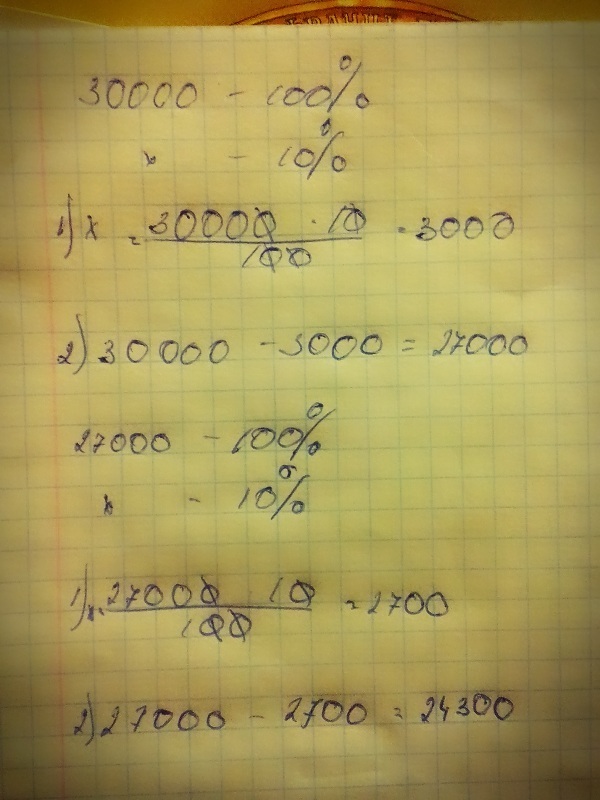 30000 - 100%
x - 10%
1) x = 30000 · 10 / 100 = 3000
2) 30000 - 3000 = 27000
27000 - 100%
x - 10%
1) x = 27000 10 / 100 = 2700
2) 27000 - 2700 = 24300